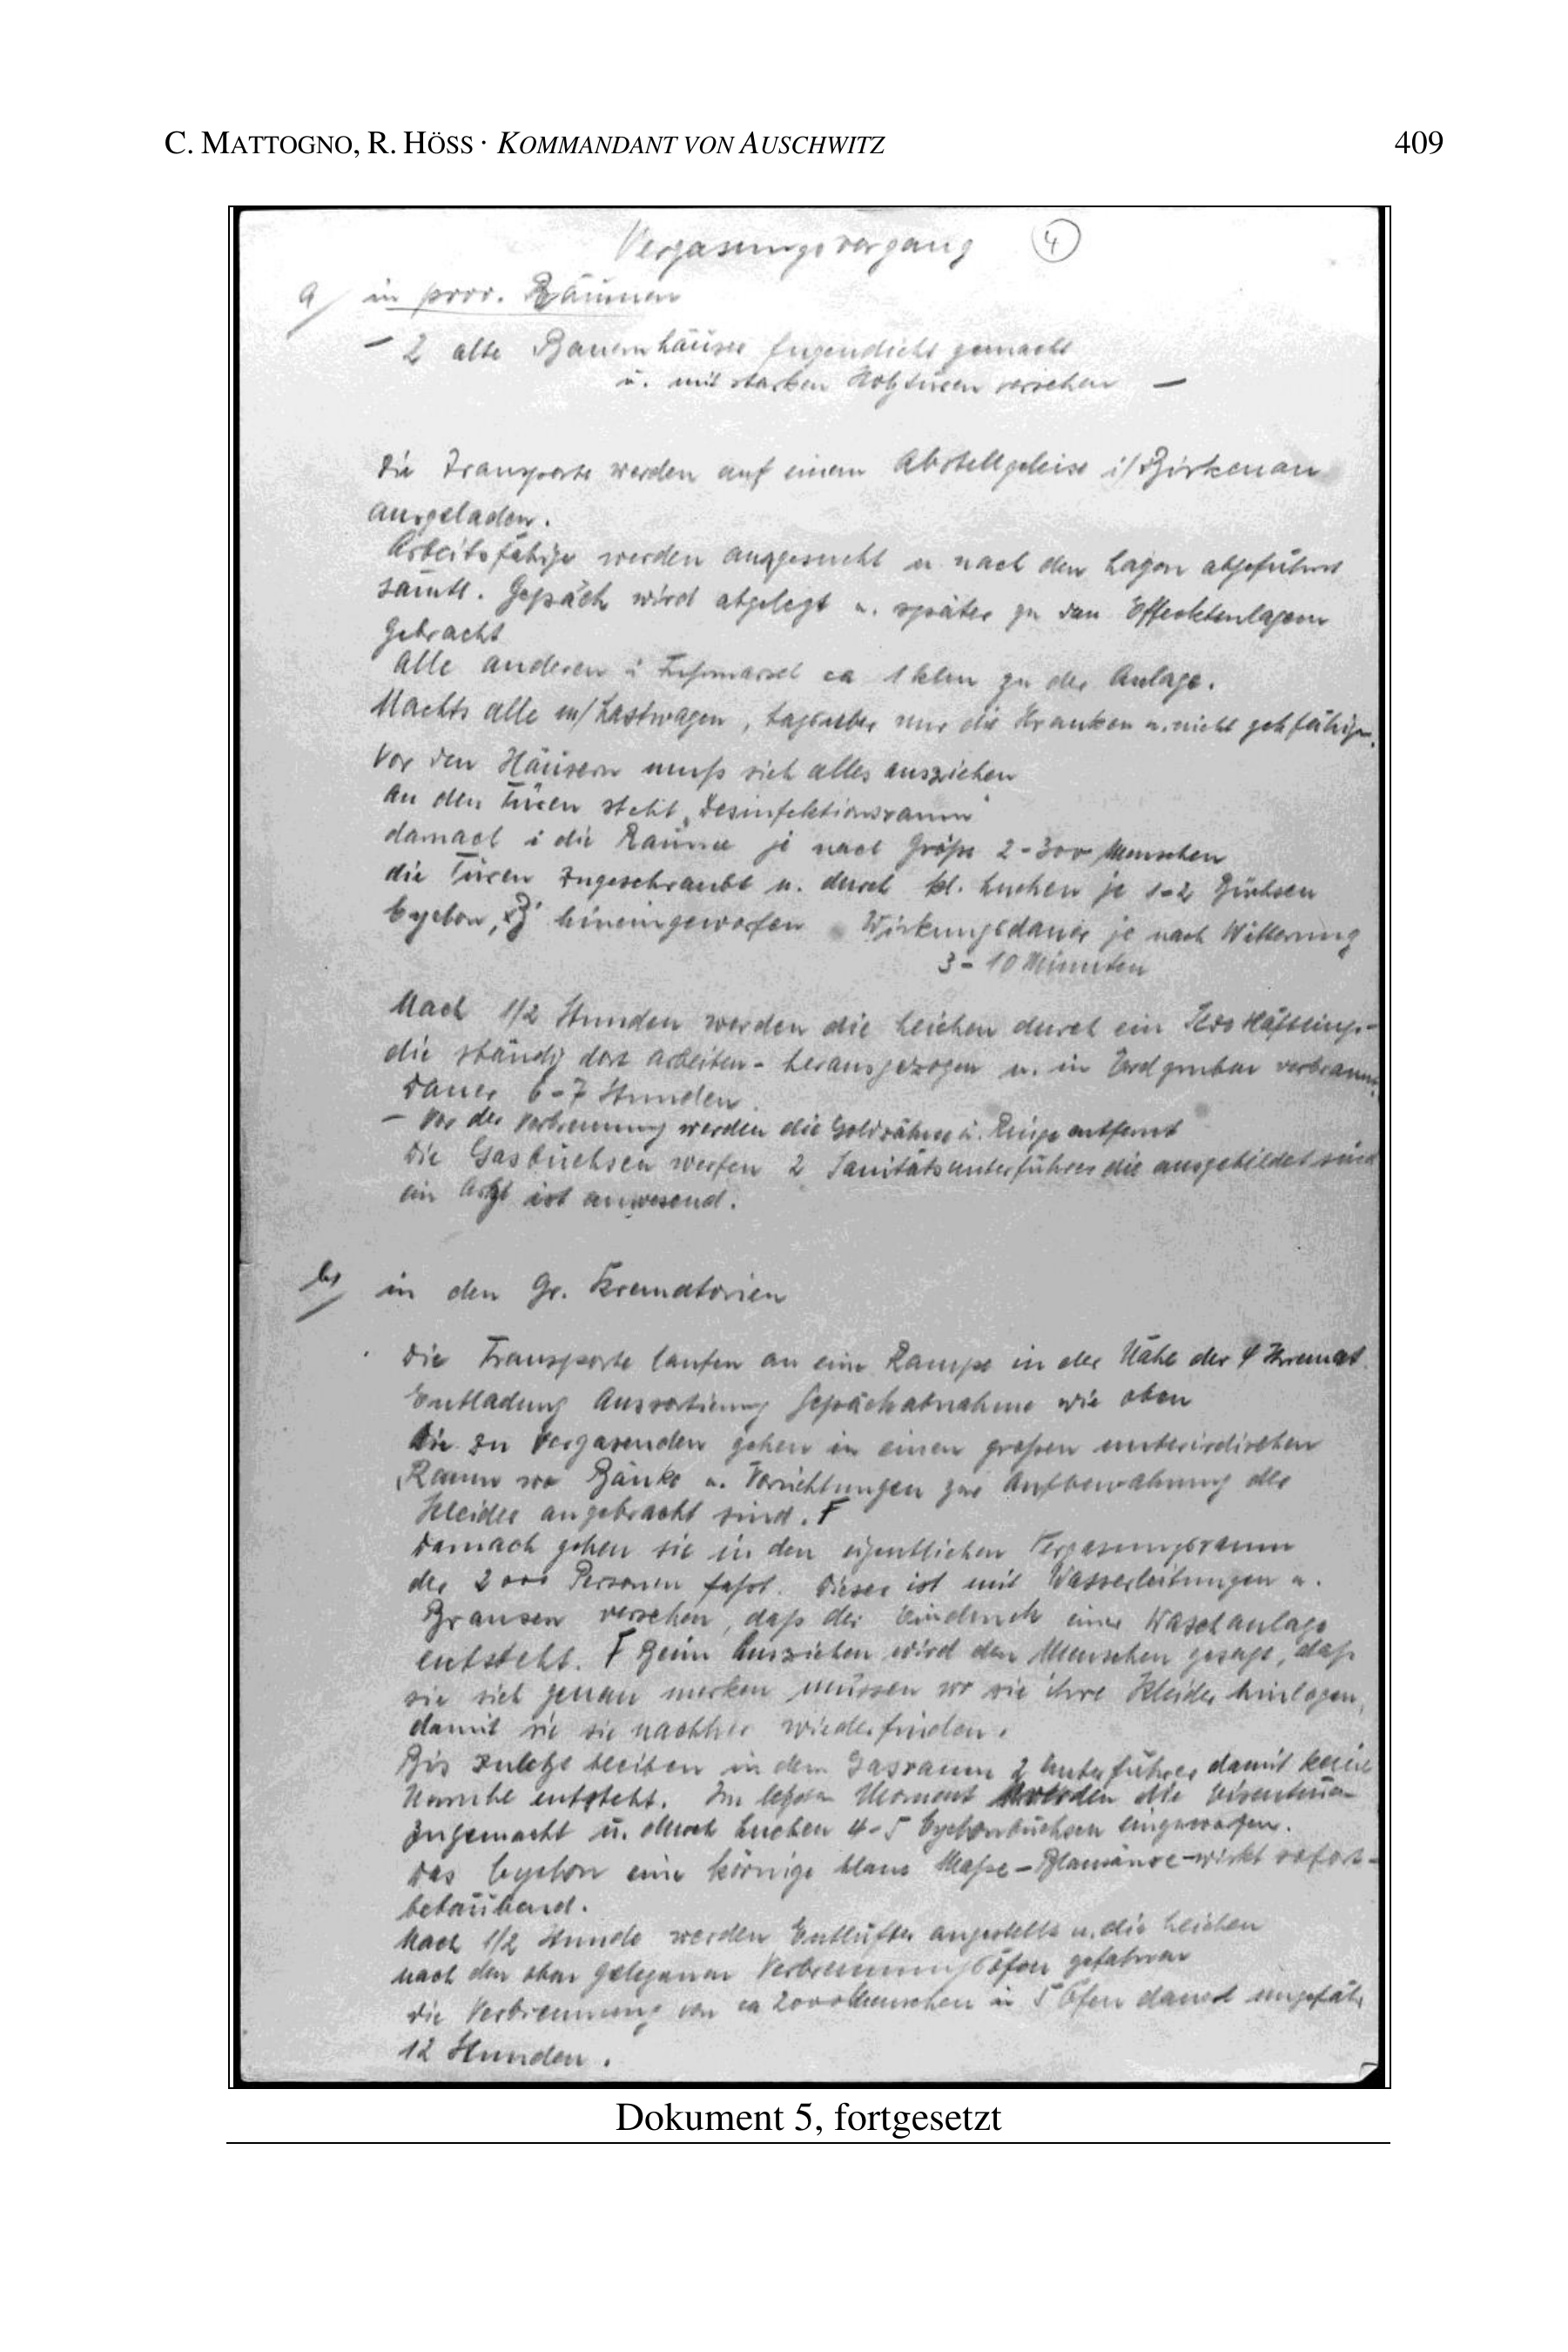 C. MATTOGNO, R. HÖSS · KOMMANDANT VON AUSCHWITZ 409
Vergasungsvorgang 4
a/ in prov. Räumen
– 2 alte Bauernhäuser fugendicht gemacht
u. mit starken Holztüren versehen –
Die Transporte werden auf einem Abstellgeleise i/Birkenau
ausgeladen.
Arbeitsfähige werden ausgesucht u nach den Lagern abgeführt
sämtl. Gepäck wird abgelegt u. später zu den Effektenlagern
gebracht
alle anderen i Fußmarsch ca 1 klm zu der Anlage.
Nachts alle m/Lastwagen, tagsueber nur die Kranken u. nicht gehfähige.
Vor den Häusern muß sich alles ausziehen
an den Türen steht „Desinfektionsraum"
damach i die Räume je nach Größe 2-300 Menschen
die Türen zugeschraubt u. durch kl. Luchen je 1-2 Büchsen
Cyclon „B" hineingeworfen Wirkungsdauer je nach Witterung
3-10 Minuten
Nach 1/2 Stunden werden die Leichen durch ein Kdo Häftlinge-
die ständig dort arbeiten- herausgezogen u. in Erdgruben verbrannt.
Dauer 6-7 Stunden.
– Vor der Verbrennung werden die Goldzähne u. Ringe entfernt
Die Gasbüchsen werfen 2 Sanitätsunterführer die ausgebildet sind
ein Arzt ist anwesend.
b/ in den Gr. Krematorien
Die Transporte laufen an eine Rampe in der Nähe der 4 Kremat.
Entladung Aussortierung Gepäckabnahme wie oben
Die zu Vergasenden gehen in einen großen unterirdischen
Raum wo Bänke u. Vorrichtungen zur Aufbewahrung der
Kleider angebracht sind. F
Damach gehen sie in den eigentlichen Vergasungsraum
der 2000 Personen faßt. Dieser ist mit Wasserleitungen u.
Brausen versehen, daß der Eindruck einer Waschanlage
entsteht. F Beim Ausziehen wird den Menschen gesagt, daß
sie sich genau merken müssen wo sie ihre Kleider hinlegen,
damit sie sie nachher wiederfinden.
Bis zuletzt bleiben in dem Gasraum 2 Unterführer damit keine
Unruhe entsteht. Im letzten Moment werden die Eisentüren
zugemacht u. durch Luchen 4-5 Cyclonbüchsen eingeworfen.
Das Cyclon eine körnige blaue Maße – Blausäure – wirkt sofort –
betäubend.
Nach 1/2 Stunde werden Entlüfter angestellt u. die Leichen
nach den oben gelegenen Verbrennungsöfen gefahren
Die Verbrennung von ca 2000 Menschen in 5 Öfen dauert ungefähr
12 Stunden.
Dokument 5, fortgesetzt